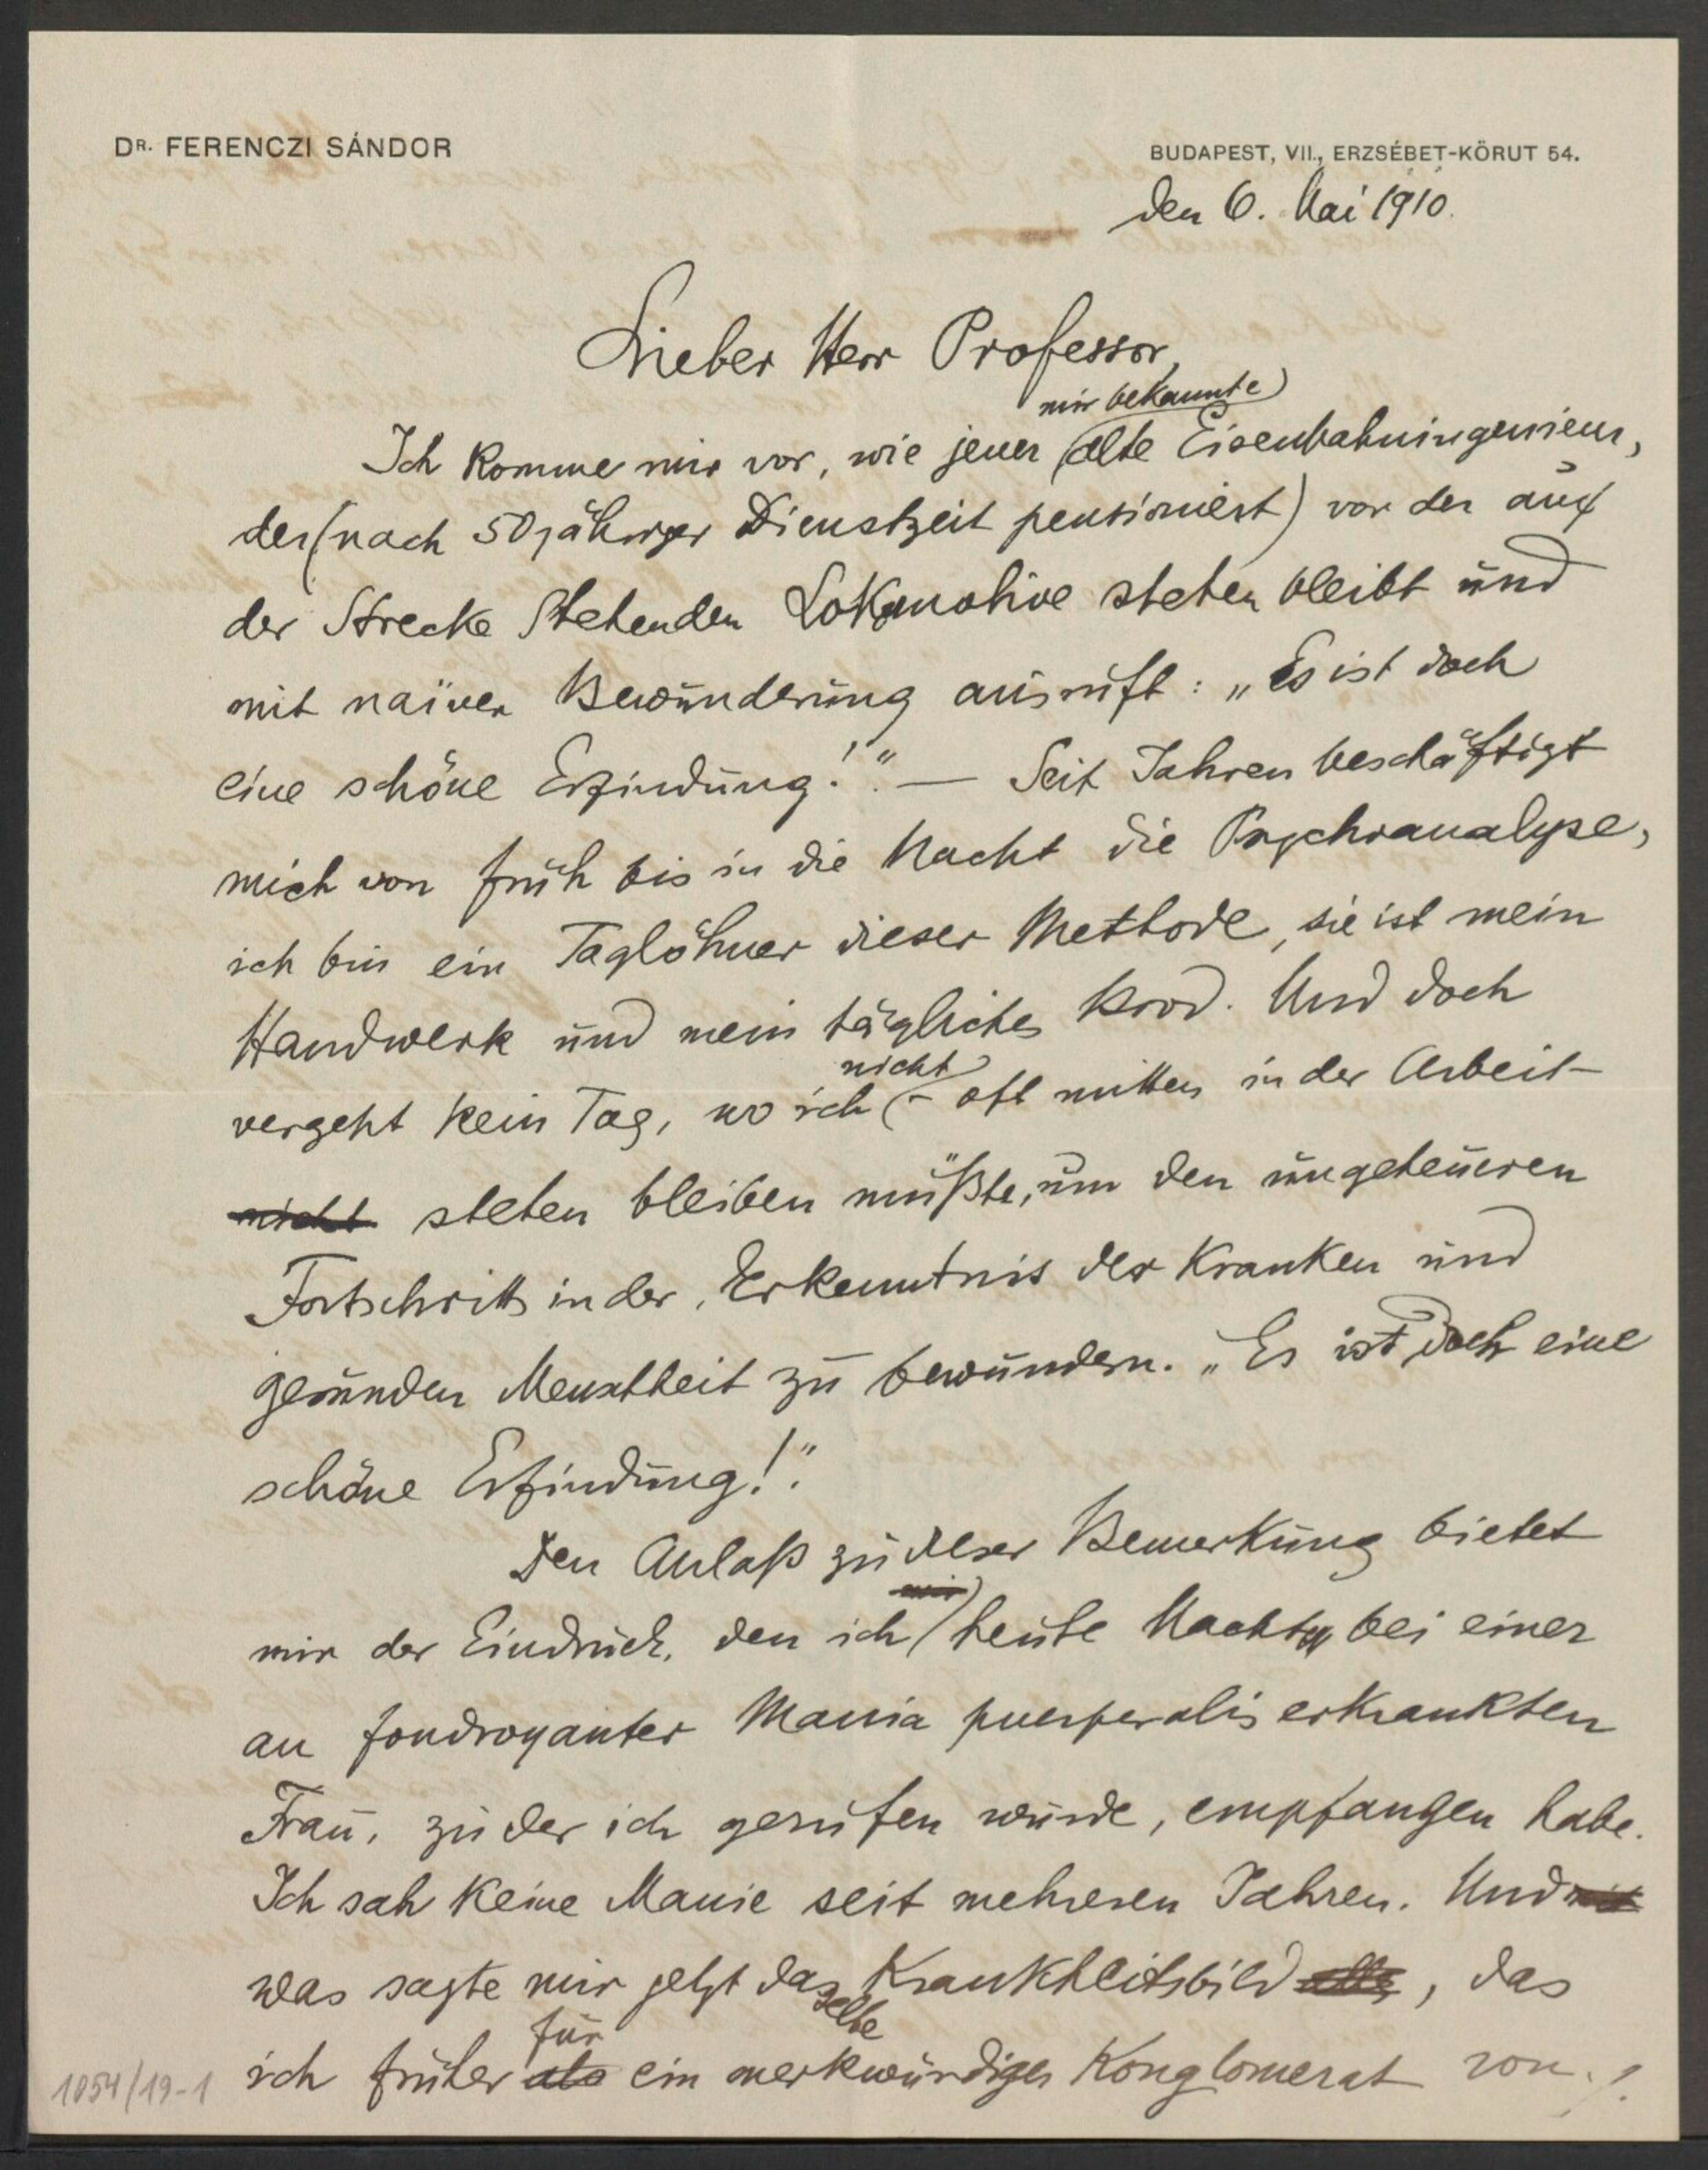 DR. FERENCZI SÁNDOR
BUDAPEST, VII., ERZSÉBET-KÖRUT 54.
den 6. Mai 1910.
Lieber Herr Professor,
mir bekannte
Ich komme mir vor, wie jener alte Eisenbahningenieur,
der (nach 50 jähriger Dienstzeit pensioniert) vor der auf
der Strecke stehenden Lokomotive stehen bleibt und
mit naïver Bewunderung ausruft: „Es ist doch
eine schöne Erfindung!“. — Seit Jahren beschäftigt
mich von früh bis in die Nacht die Psychoanalyse,
ich bin ein Taglöhner dieser Methode, sie ist mein
Handwerk und mein tägliches Brod. Und doch
nicht
vergeht kein Tag, wo ich – oft mitten in der Arbeit –
nicht stehen bleiben müßte, um den ungeheueren
Fortschritt in der Erkenntnis der kranken und
gesunden Menschheit zu bewundern. „Es ist doch eine
schöne Erfindung!“.
Den Anlaß zu dieser Bemerkung bietet
mir
mir der Eindruck, den ich heute Nacht bei einer
an foudroyanter Mania puerperalis erkrankten
Frau, zu der ich gerufen wurde, empfangen habe.
Ich sah keine Manie seit mehreren Jahren. Und mit
was sagte mir jetzt das Krankheitsbild alles, das
selbe
für
ich früher als ein merkwürdiges Konglomerat von ./.
1054/19-1